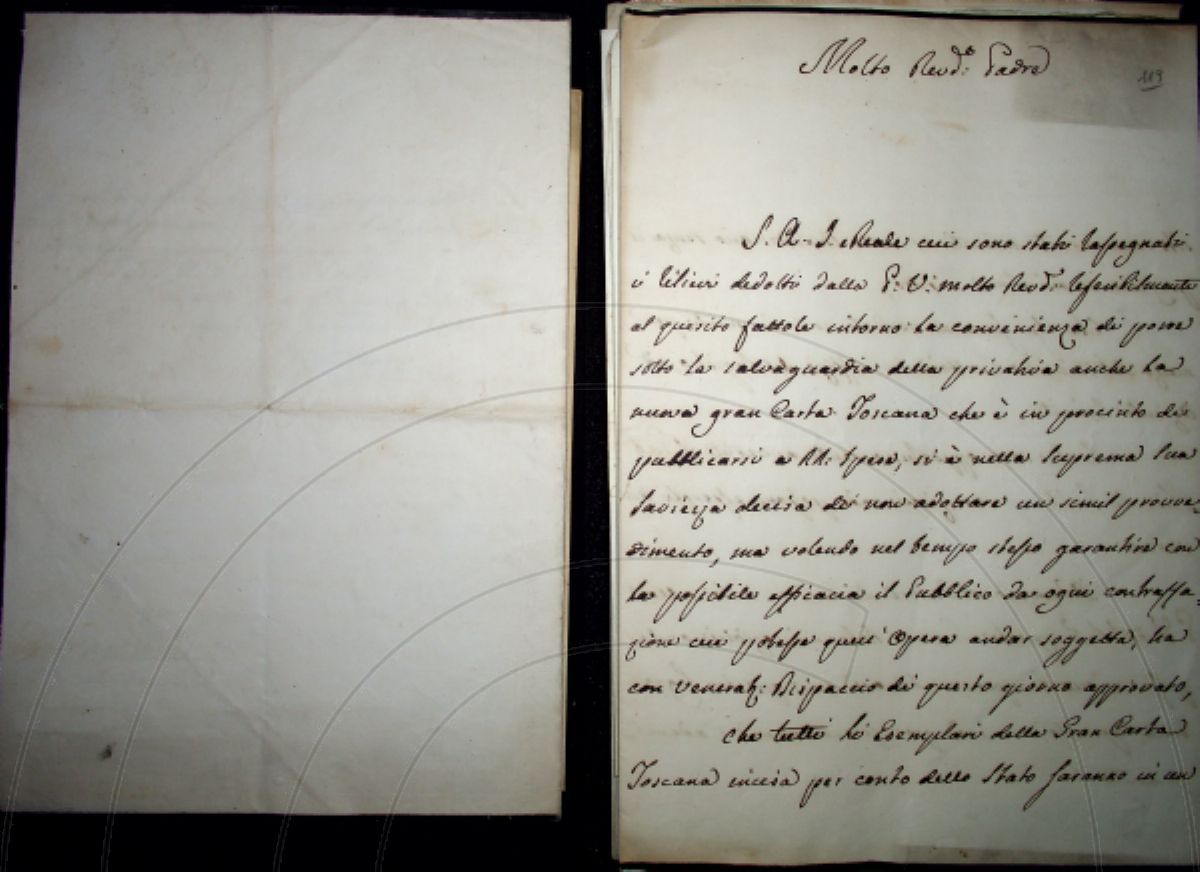 Molto Revd.o Padre
119
S. A. I. e Reale cui sono stati rassegnati
i rilievi dedotti dalla P: V: molto Revd.a
al quesito fattole intorno la convenienza di porre
sotto la salvaguardia della privativa anche la
nuova gran Carta Toscana che è in procinto di
pubblicarsi a RR: spese, si è nella Suprema Sua
Saviezza decisa di non adottare un simil provve=
dimento, ma volendo nel tempo stesso garantire con
la possibile efficacia il Pubblico da ogni contraffa=
zione cui potesse quell' Opera andar soggetta, ha
con venerat: Dispaccio di questo giorno approvato,
che tutti li Esemplari della Gran Carta
Toscana incisa per conto dello Stato saranno in un